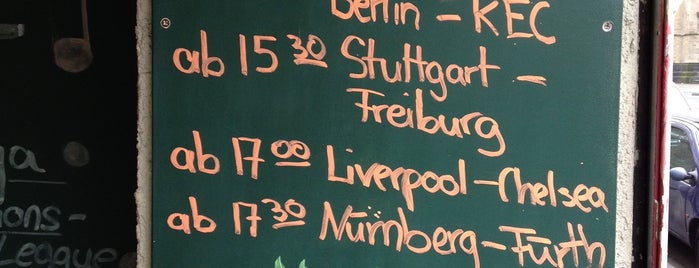 Berlin – KEC
ab 15 30 Stuttgart –
Freiburg
ab 17 00 Liverpool – Chelsea
ab 17 30 Nürnberg – Fürth
ga
ions-
League